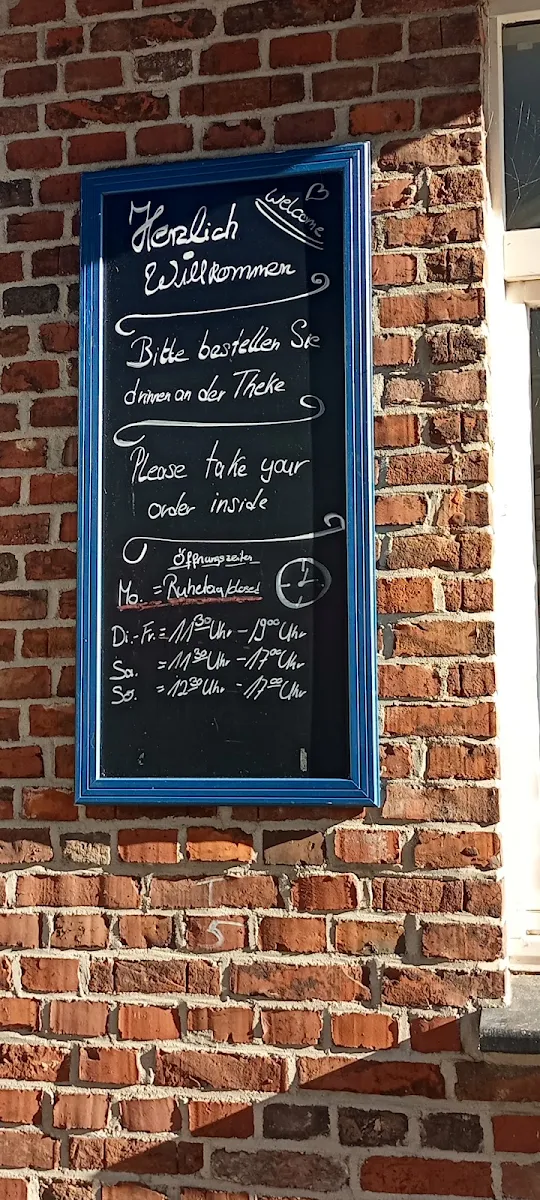 Herzlich
Welcome
Willkommen
Bitte bestellen Sie
drinnen an der Theke
Please take your
order inside
Öffnungszeiten
Mo. = Ruhetag/closed
Di.-Fr. = 11³⁰ Uhr - 19⁰⁰ Uhr
Sa. = 11³⁰ Uhr - 17⁰⁰ Uhr
So. = 12³⁰ Uhr - 17⁰⁰ Uhr